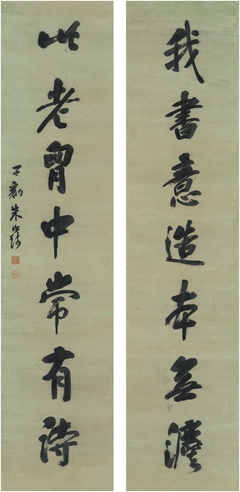 我書意造本無法
此老胷中常有詩
子鶴朱